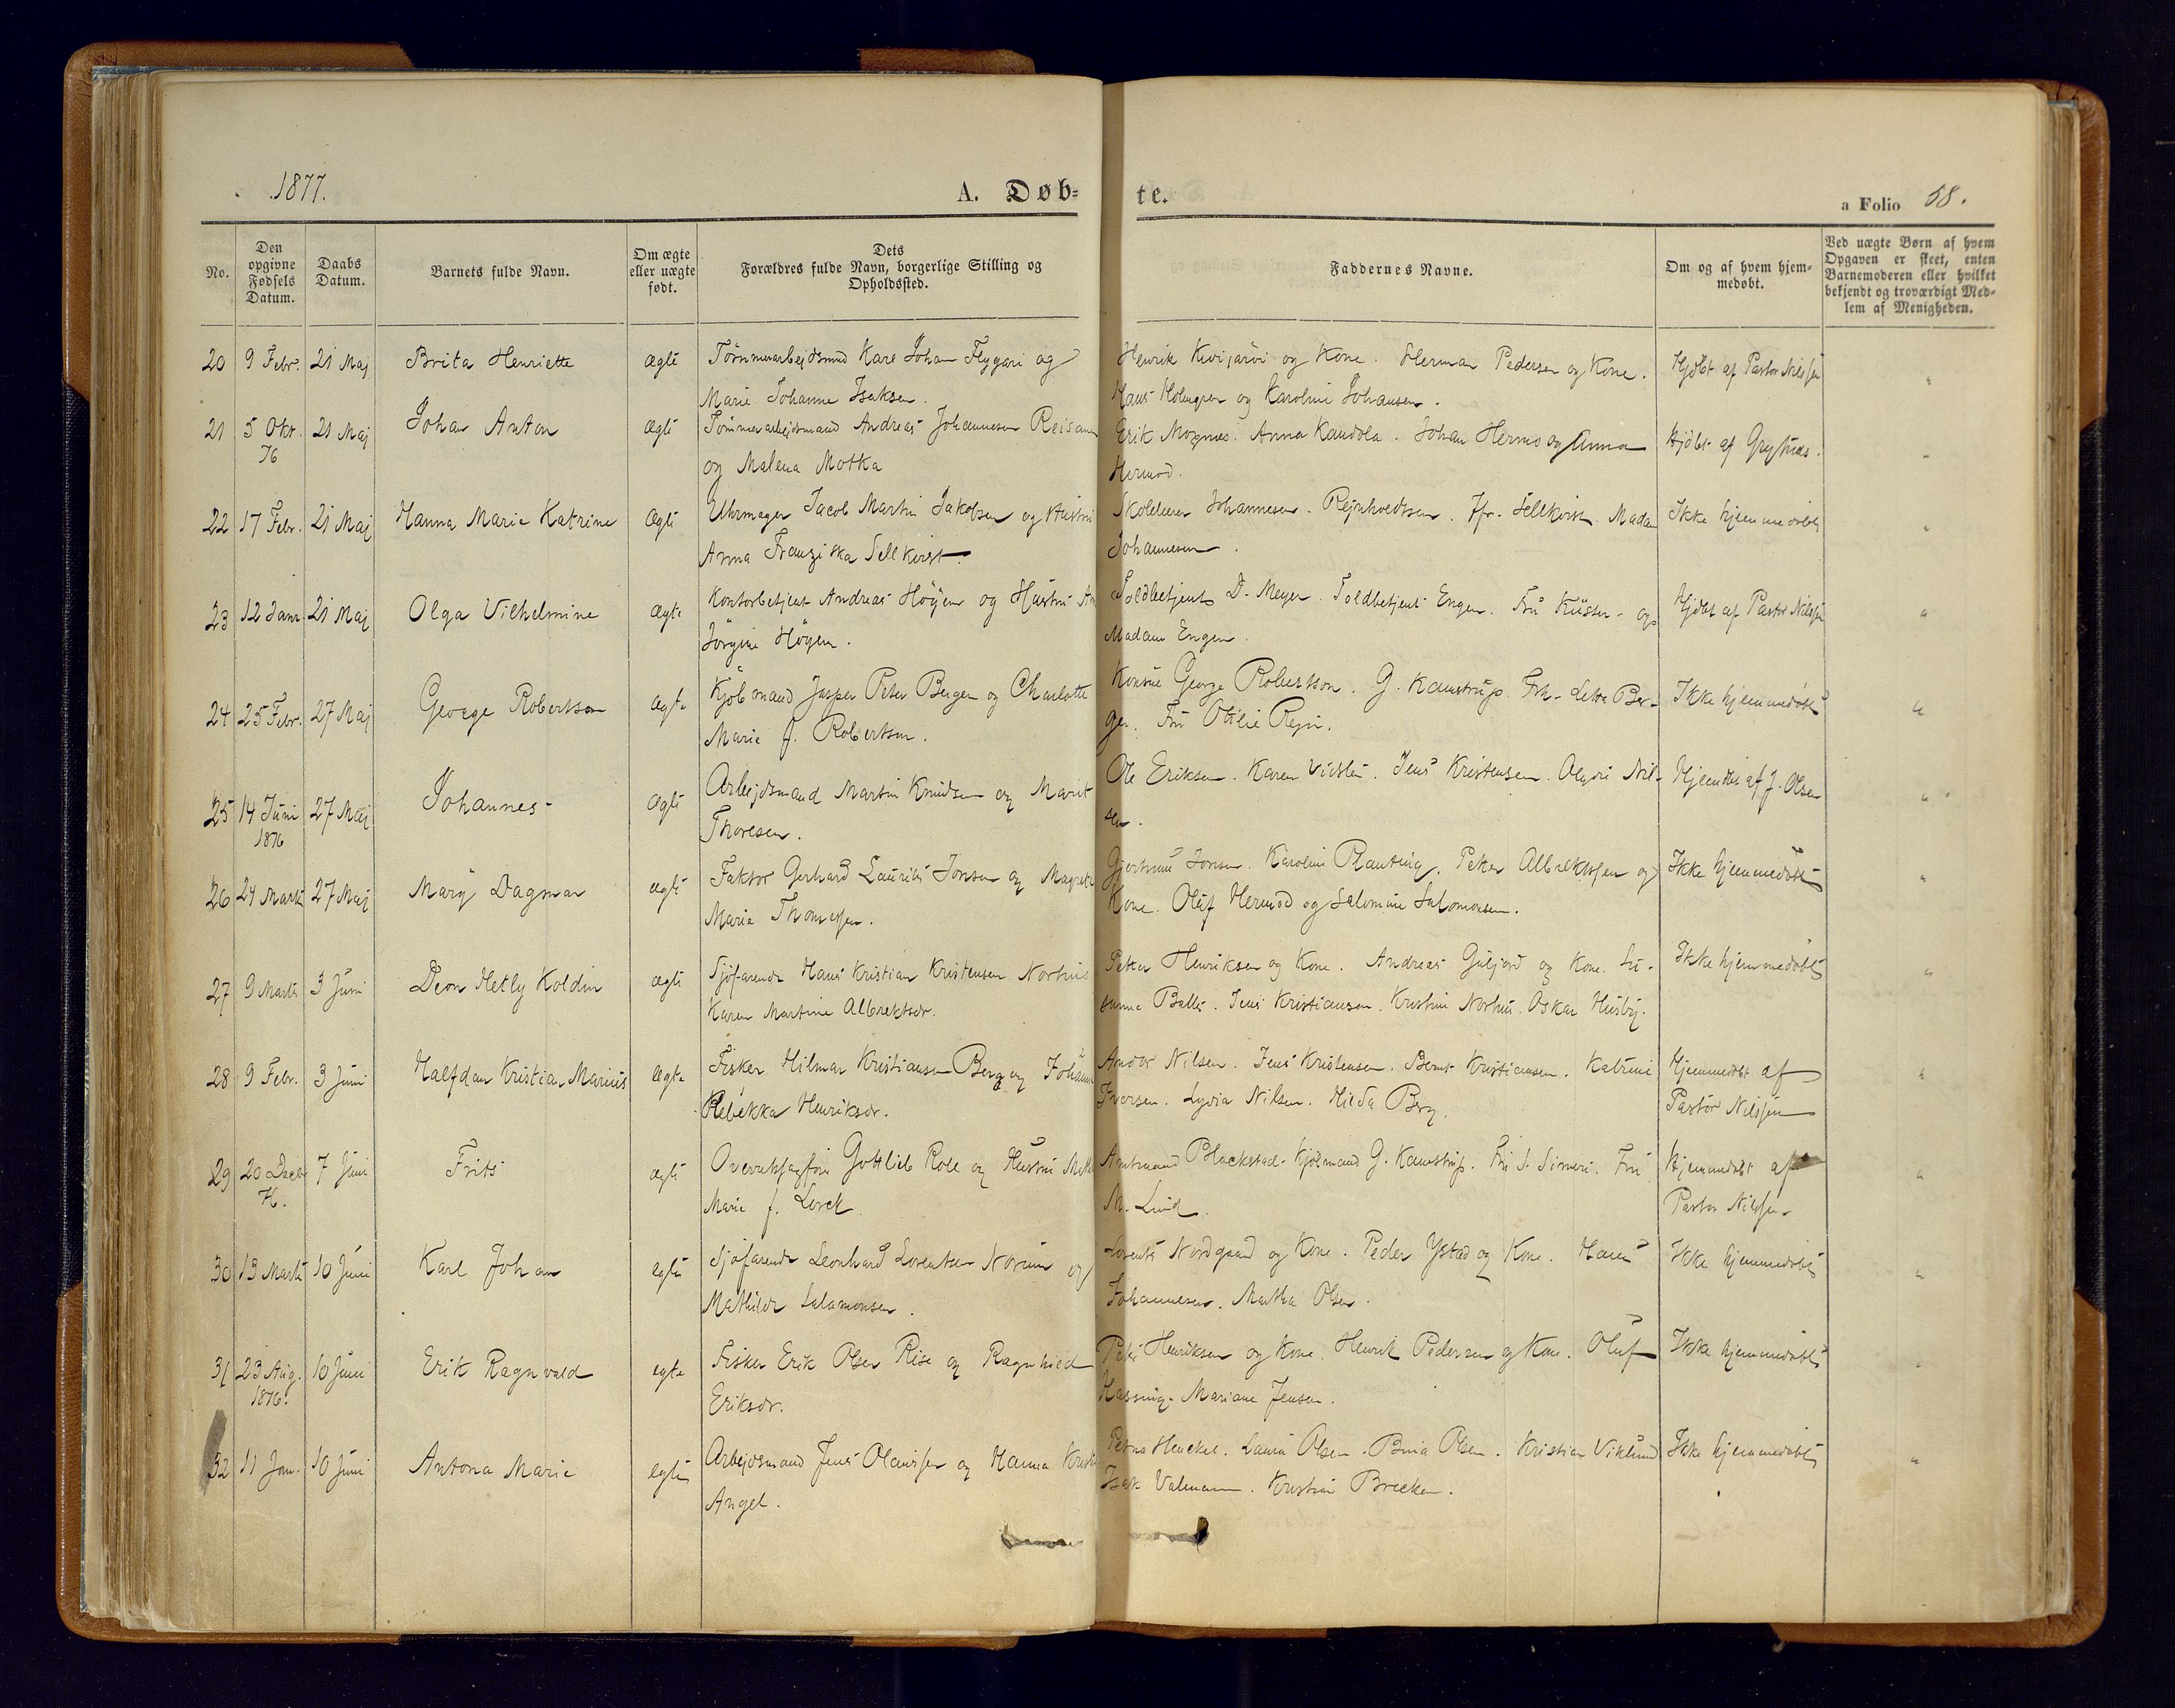 1877.
A. Døb-
te.
a Folio 58.
No.
Den opgivne Fødsels Datum.
Daabs Datum.
Barnets fulde Navn.
Om ægte eller uægte født.
Dets Forældres fulde Navn, borgerlige Stilling og Opholdssted.
Faddernes Navne.
Om og af hvem hjem-medøbt.
Ved uægte Børn af hvem Opgaven er skeet, enten Barnemoderen eller hvilket bekjendt og troværdigt Med-lem af Menigheden.
20 9 Febr. 21 Maj Brita Henriette ægte Tømmerarbejdsmnd Karl Johan Flygari og Henrik Kivijarvi og Kone. Herman Pedersen og Kone. Hjdbt af Pastor Nilssen "
Marie Johanne Isaksen. Hans Holmgren og Karoline Johansen.
21 5 Okt. 21 Maj Johan Anton ægte Tømmerarbejdsmand Andreas Johannesen Erik Mognes. Anna Kandola. Johan Hermo og Anna Hjdbt af "
76 og Malena Motka Hermod.
22 17 Febr. 21 Maj Hanna Marie Katrine ægte Uhrmager Jacob Martin Jakobsen og Hustru Skolelærer Johannesen. Rejnholdtsen. Jfr. Sellkvist. Madam Ikke hjemmedøbt "
Anna Franziska Sellkvist. Johannesen.
23 12 Janr. 21 Maj Olga Vilhelmine ægte Kontorbetjent Andreas Höyer og Hustru Toldbetjent D. Meyer. Toldbetjent Engen. Fru Küster og Hjdbt af Pastor Nilssen "
Jörgine Höyer. Madam Engen.
24 25 Febr. 27 Maj George Robertson ægte Kjöbmand Jesper Peter Berger og Charlotte Konsul George Robertson. G. Kamstrup. Frk. Ber- Ikke hjemmedøbt "
Marie f. Robertson. ger. Fru Otilie
25 14 Juni 27 Maj Johannes ægte Arbejdsmand Martin Knudsen og Marit Ole Eriksen. Karen Jens Kristensen. Nil- Hjemdbt af J. Olsen "
1876 Thoresen. sen.
26 24 Marts 27 Maj Mary Dagmar ægte Faktor Gerhard Laurits Jonsen og Magrete Jonsen. Karoline Planting. Peter Albrektssen og Ikke hjemmedøbt "
Marie Thomassen. Kone. Oluf Hermod og Salomine Salomonsen.
27 9 Marts 3 Juni Hetly Koldin ægte Sjöfarende Hans Kristian Kristensen Norhus Petter Henriksen og Kone. Andreas Guljord og Kone. Su- Ikke hjemmedøbt "
Karen Martine Albrektsdr. sanna Balls. Jens Kristiansen. Kristine Norhus. Oskar Husby.
28 9 Febr. 3 Juni Halfdan Kristian Marius ægte Fisker Hilmar Kristiansen Berg og Johanna Nilsen. Jens Kristensen. Bernt Kristiansen. Katrine Hjemmedbt af "
Rebekka Henriksdr. Iversen. Lydia Nilsen. Hilda Berg. Pastor Nilssen
29 20 Decbr 7 Juni Frits ægte Gottlieb Role og Hustru Amtmand Blackstad. Kjöbmand G. Kamstrup. Fru Fru Hjemmedbt af "
76. Marie f. Lorck M. Lund. Pastor Nilssen
30 13 Marts 10 Juni Karl Johan egte Sjöfarende Leonhard Lorentsen Norum og Lorents Nordgaard og Kone. Peder Ystad og Kone. Hans Ikke hjemmedøbt "
Mathilde Salamonsen. Johannesen. Martha Olsen.
31 23 Aug. 10 Juni Erik Ragnvald egte Fisker Erik Olsen Rise og Ragnhild Henriksen og Kone. Henrik Pedersen og Kone. Oluf Ikke hjemmedøbt "
1876. Eriksdr. Hassing. Mariane Jensen.
32 11 Jan. 10 Juni Antona Marie egte Arbejdsmand Jens Olaussen og Hanna Petra Henckel. Laura Olsen. Olsen. Kristian Viklund Ikke hjemmedøbt "
Angel. Isak Kristine Brecken.